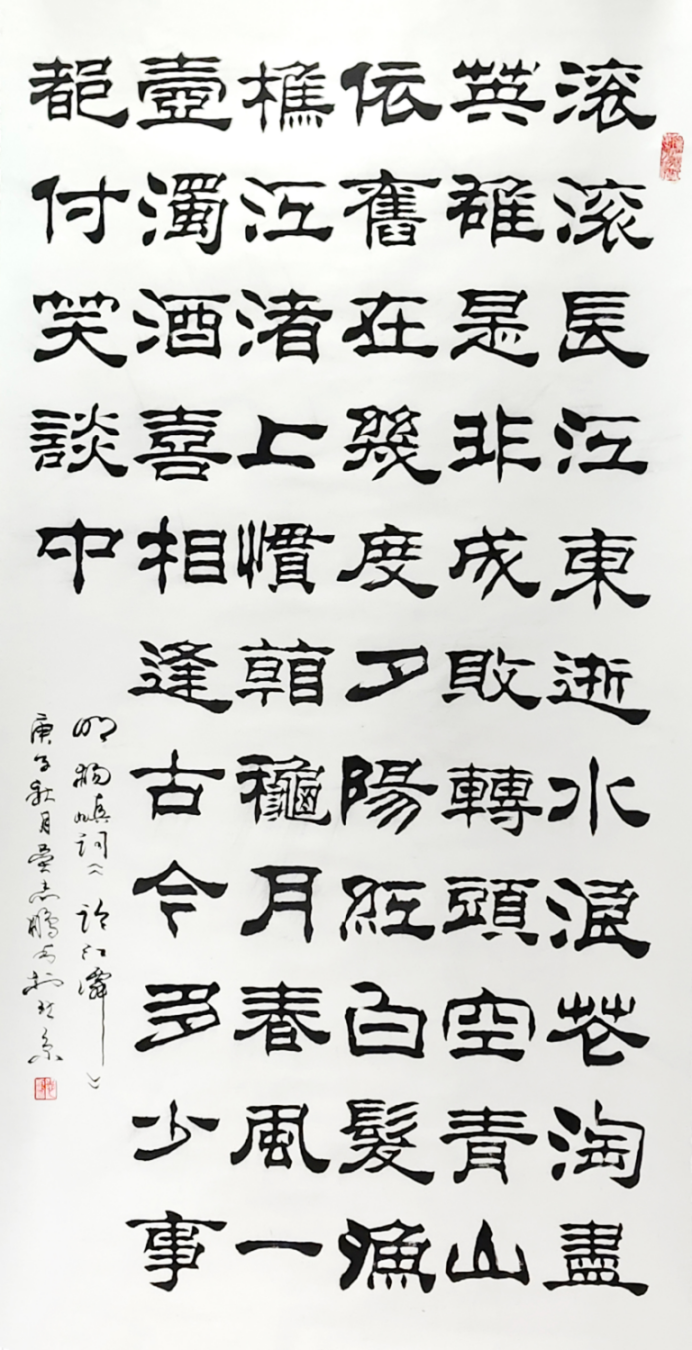 滚滚長江東逝水浪花淘盡
英雄是非成敗轉頭空青山
依舊在幾度夕陽紅白髮漁
樵江渚上慣看龝月春風一
壺濁酒喜相逢古今多少事
都付笑談中
明楊慎詞《臨江僊》
庚子秋月